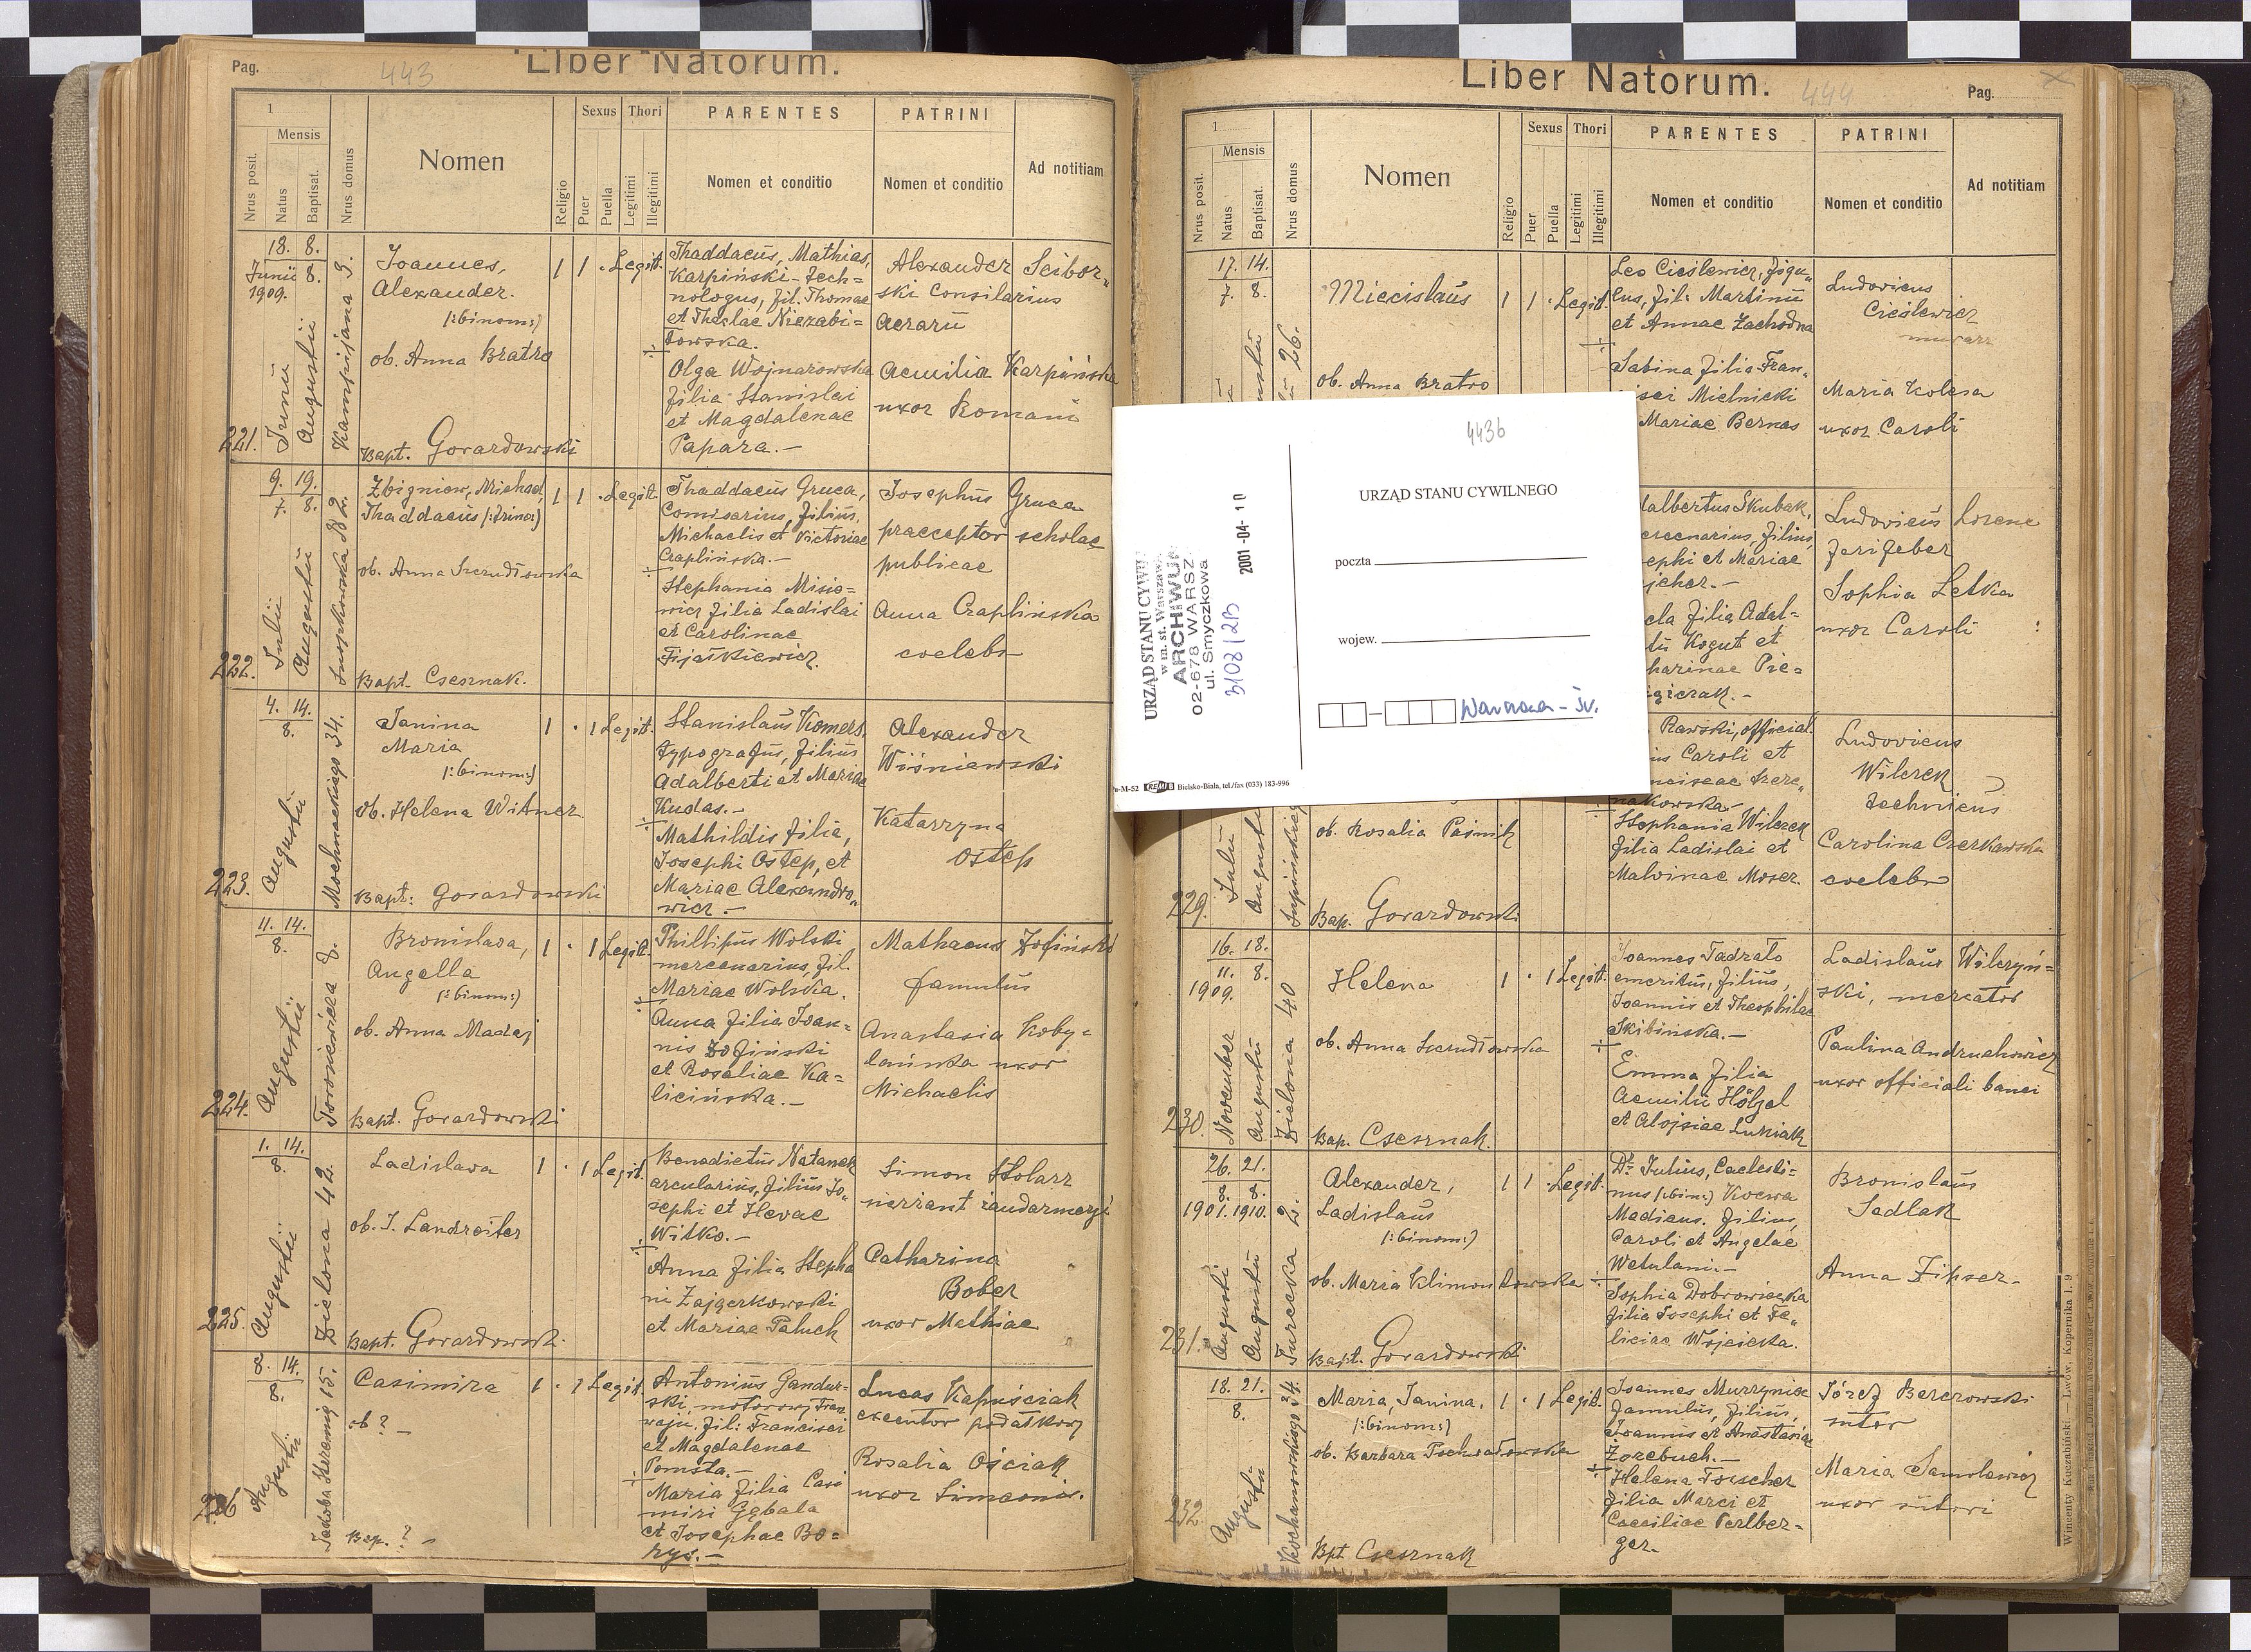 Pag. 443 Liber Natorum.
1
Mensis
Nrus posit.
Natus
Baptisat.
Nrus domus
Nomen
Religio
Sexus
Puer
Puella
Thori
Legitimi
Illegitimi
PARENTES
Nomen et conditio
PATRINI
Nomen et conditio
Ad notitiam
221.
18. 8.
Junii 8.
1909.
Junii
Augustii
Joannes,
Alexander.
/:binom:/
ob. Anna Bratro
Bapt. Gorardowski
1 1 · Legit.
Thaddaeus, Mathias,
Karpiński tech=
nologus, fil. Thomae
et Theclae Niezabi=
towska.
Olga Wojnarowska
filia Stanislai
et Magdalenae
Papara.-
Alexander Scibor-
ski Consilarius
Aerarii
Aemilia Karpińska
uxor Romani
222.
9. 19.
7. 8.
Julii
Augustii
Zbigniew, Michael
Thaddaeus /:trinom:/
ob. Anna Szczudłowska
Bapt. Csesznak.
1 1 · Legit.
Thaddaeus Gruca,
Comisarius, filius,
Michaelis et Victoriae
Czaplińska.-
Stephania Misio=
wicz filia Ladislai
et Carolinae
Fijałkiewicz.
Josephus Gruca
praeceptor scholae
publicae
Anna Czaplińska
coelebs
223.
4. 14.
8.
Augustii
Mochnackiego 34.
Janina
Maria
/:binom:/
ob. Helena Witner
Bapt: Gorardowski
1 · 1 Legit.
Stanislaus Komers,
typografus, filius
Adalberti et Mariae
Kudas.-
Mathildis filia,
Josephi Ostep, et
Mariae Alexandro-
wicz.-
Alexander
Wiśniewski
Katarzyna
Ostep
224.
11. 14.
8.
Augustii
Bronislava,
Angella
/:binom:/
ob. Anna Madej
Bapt. Gorardowski
1 · 1 Legit.
Phillipus Wolski
mercenarius, fil.
Mariae Wolska.
Anna filia Joan=
nis Zofiński
et Rosaliae Ka=
licińska.-
Mathaeus Zofiński
famulus
Anastasia Koby-
lańska uxor
Michaelis
225.
1. 14.
8.
Augustii
Zielona 42.
Ladislava
ob. J. Landreiter
Bapt. Gorardowski.
1 · 1 Legit.
Benedictus Natanek
arcularius, filius Jo-
sephi et Hevae
Witko.-
Anna filia Stepha
ni Zajączkowski
et Mariae Paluch
Simon Stolarz
Catharina
Bober
uxor Mathiae
226
8. 14.
8.
Augustii
Casimira
ob ? -
Bap. ? -
1 · 1 Legit.
Antonius Gandur-
ski, motorowy tram
waju, fil: Francisci
et Magdalenae
Pomsta.-
Maria filia Casi
miri Gębala
et Josephae Bo=
rys.-
Lucas Kapuściak
executor podatkowy
Rosalia Ościak
uxor Simeonis.
Liber Natorum. 444 Pag.
1
Mensis
Nrus posit.
Natus
Baptisat.
Nrus domus
Nomen
Religio
Sexus
Puer
Puella
Thori
Legitimi
Illegitimi
PARENTES
Nomen et conditio
PATRINI
Nomen et conditio
Ad notitiam
17. 14.
7. 8.
26.
Miecislaus
ob. Anna Bratro
1 1 · Legit.
Leo Cieślewicz, figu-
lus, fil: Martini
et Annae Zachodna
Sabina filia Fran-
Mielnicki
Mariae Bernas
Ludovicus
Cieślewicz
murarz
Maria Kolesa
uxor Caroli
4436
URZĄD STANU CYWILNEGO
poczta
wojew.
Warszawa - Śr.
URZĄD STANU CYWIL
w m. st. Warszaw
ARCHIWUM
02-678 WARSZ
ul. Smyczkowa
3108/2B
2001 -04- 10
u-M-52 KREMI B Bielsko-Biała, tel./fax (033) 183-996
dalbertus Skubak,
filius
sephi et Mariae
filia Adal=
Kogut et
harinae Pie=
Ludovicus Lorenc
Sophia Letka
uxor Caroli
229.
Julii
ob. Rosalia Paśnik
Bap. Gorardowski
Rawski, official.
Caroli et
Stephania Wilczek
filia Ladislai et
Malvinae Moser.
Ludovicus
Wilczek
technicus
Carolina Czerkawska
coelebs
230.
16. 18.
11. 8.
1909.
November
Augustii
Zielona 40
Helena
ob. Anna Szczudłowska
Bap. Csesznak.
1 · 1 Legit.
Joannes Tadrało
emeritus, filius,
Joannis et Theophilae
Skibińska.-
Emma filia
Aemilii Hölzel
et Alojsiae Łukiak
Ladislaus Wilczyń=
ski, mercator
Paulina Andruchowicz
uxor officiali banci
231.
26. 21.
8. 8.
1901. 1910.
Augusti
Augustii
Turecka 2.
Alexander,
Ladislaus
/:binom:/
ob. Maria Klimontowska
Bapt. Gorardowski
1 1 · Legit.
Dr. Julius, Caelesti=
nus /:bin:/ Kocwa
Medicus. filius,
Caroli et Angelae
Wetulani.-
Sophia Dobrowieska
filia Josephi et Fe-
liciae Wojcicka.
Bronislaus
Sedlak
Anna Zipser-
232.
18. 21.
8.
Augustii
Kochanowskiego 34.
Maria, Janina,
/:binom:/
Bpt Csesznak
1 · 1 Legit.
Joannes Murzyniec
famulus, filius,
Joannis et Anastasiae
Zozebuch.-
Helena Toescher
filia Marci et
Caeciliae Perlber=
ger.-
Józef Berezowski
sutor
Maria Samolewicz
uxor sutori
Wincenty Kuczabiński. — Lwów, Kopernika l. 9